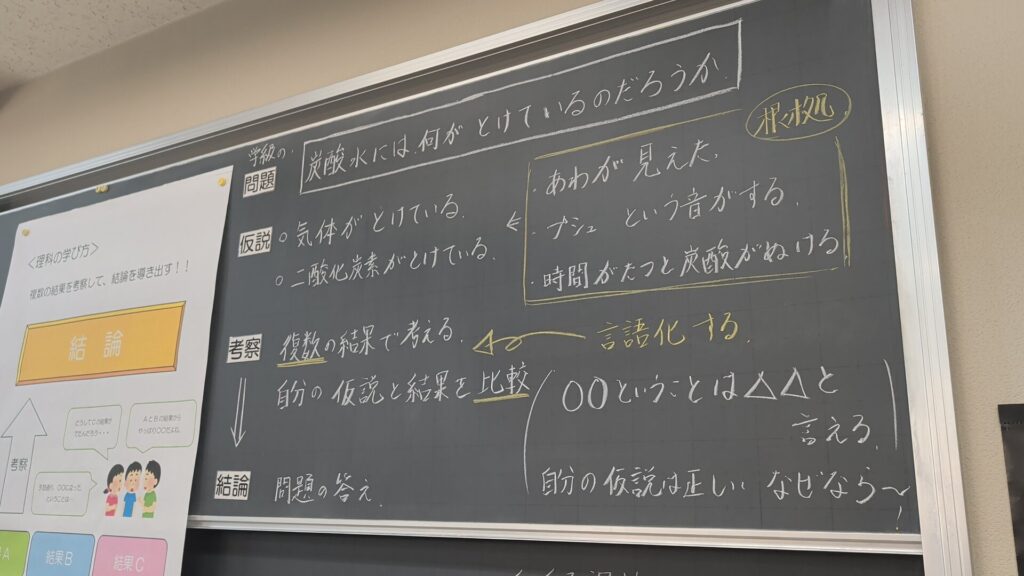 学級の
問題
炭酸水には何がとけているのだろうか
仮説
○気体がとけている。
○二酸化炭素がとけている。
根拠処
・あわが見えた。
・プシュという音がする。
・時間がたつと炭酸がぬける
考察
複数の結果で考える。
言語化する。
自分の仮説と結果を比較
○○ということは△△と
言える。
自分の仮説は正しい なぜなら〜
結論
問題の答え。
<理科の学び方>
複数の結果を考察して、結論を導き出す!!
結論
考察
どうしてCの結果が
でたんだろう・・・
AとBの結果から
やっぱり〇〇だよね。
ということは…
A
結果B
結果C